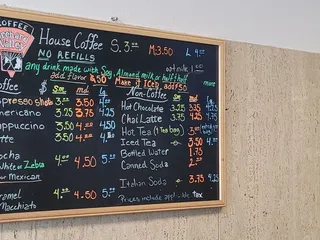 COFFEE
House Coffee S. 3.00 M. 3.50 L 4.
NO REFILLS
any drink made with Soy, Almond milk or half & half
add flavor $.50 Make it ICED add $.50 more
offee $ sm md lg Non-Coffee sm md lg
spresso shots 3.00 3.50 4. Hot Chocolate 3.25 3.50 4.25
mericano 3.25 3.75 4.25 Chai Latte 3.75 3.75 4.75
appuccino 3.50 4.00 4.50 Hot Tea (1 Tea bag) 3.00
atte 3.50 4.00 Iced Tea 3.50 4.
Bottled Water 1.75
ocha 4.00 4.50 5. Canned Soda 2.00
White or Zebra
or Mexican Italian Soda 3.75 4.25
aramel 4.00 4.50 5. Prices include tax
Macchiato